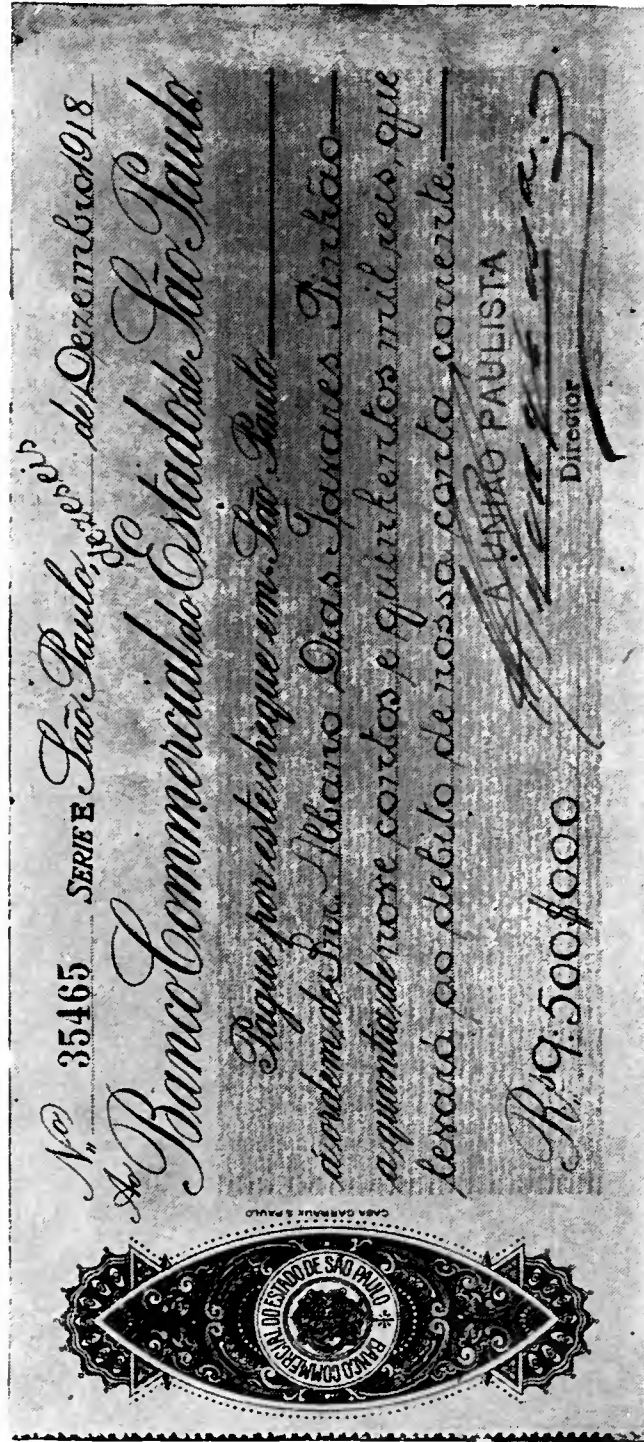 Nº 35465 SERIE E São Paulo, dezeseis de Dezembro 1918
Ao Banco Commercial do Estado de São Paulo
Pague por este cheque em São Paulo
á ordem do Snr. Albano Dias Tavares Pinhão
a quantia de nove contos e quinhentos mil reis, que
levará ao debito de nossa conta corrente.
A UNIÃO PAULISTA
Rs 9:500$000
Director
CASA GARRAUX S. PAULO
BANCO COMMERCIAL DO ESTADO DE SÃO PAULO